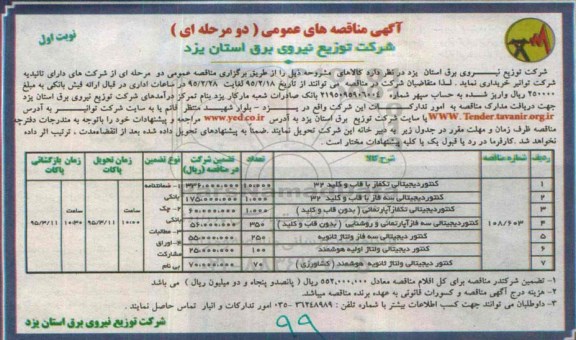 آگهی مناقصه های عمومی ( دو مرحله ای )
نوبت اول
شرکت توزیع نیروی برق استان یزد
شرکت توزیع نیروی برق استان یزد در نظر دارد کالاهای مشروحه ذیل را از طریق برگزاری مناقصه عمومی دو مرحله ای از شرکت های دارای تائیدیه
شرکت توانیر خریداری نماید . لذا متقاضیان شرکت در مناقصه می توانند از تاریخ ۹۵/۲/۱۸ لغایت ۹۵/۲/۲۸ در ساعات اداری در قبال ارائه فیش بانکی به مبلغ
۲۵۰۰۰۰ ریال واریز شده به حساب سپهر شماره بانک صادرات شعبه بازکار یزد بنام تمرکز درآمدهای شرکت توزیع نیروی برق استان یزد
جهت دریافت مدارک مناقصه به امور تدارکات این شرکت واقع در یزد - بلوار شهید منتظر قائم یا به سایت شرکت توانیر به آدرس
WWW.Tender.tavanir.org.ir یا سایت شرکت توزیع برق استان یزد به آدرس www.yed.co.ir مراجعه و پیشنهادات خود را باتوجه به مندرجات دفترچه
مناقصه ظرف زمان و مهلت مقرر در جدول زیر به دبیر خانه این شرکت تحویل نمایند .ضمناً به پیشنهادهای تحویل داده شده بعد از انقضاءمدت ، ترتیب اثر داده
نخواهد شد .کارفرما در رد یا قبول یک یا کلیه پیشنهادات مختار است .
ردیف شماره مناقصه شرح کالا تعداد تضمین شرکت در مناقصه (ریال) نوع تضمین زمان تحویل پاکات زمان بازگشائی پاکات
۱ کنتور دیجیتالی تکفاز با قاب و کلید ۳۲ ۱۰،۰۰۰ ۳۳۶،۰۰۰،۰۰۰
۲ کنتور دیجیتالی سه فاز با قاب و کلید ۳۲ ۱،۰۰۰ ۱۷۵،۰۰۰،۰۰۰
۳ کنتور دیجیتالی تکفاز آپارتمانی ( بدون قاب و کلید ) ۲،۰۰۰ ۶۰،۰۰۰،۰۰۰
۴ ۱۰۸/۶۰۳ کنتور دیجیتالی سه فاز آپارتمانی و روشنایی ( بدون قاب و کلید ) ۳۵۰ ۵۶،۰۰۰،۰۰۰
۵ کنتور دیجیتالی سه فاز ولتاژ ثانویه ۲۵۰ ۵۵،۰۰۰،۰۰۰
۶ کنتور دیجیتالی ولتاژ اولیه هوشمند ۱۰۰ ۲۵،۰۰۰،۰۰۰
۷ کنتور دیجیتالی ولتاژ ثانویه هوشمند ( کشاورزی ) ۷۰ ۷۰،۰۰۰،۰۰۰
۱- ضمانتنامه
بانکی
۲- چک
بانکی
۳- مطالبات
۴- اوراق
مشارکت
بی نام
ساعت ۱۰:۰۰ ۹۵/۳/۱۱
ساعت ۱۰:۳۰ ۹۵/۳/۱۱
۱- تضمین شرکت در مناقصه برای کل اقلام مناقصه معادل ۵۵۲،۰۰۰،۰۰۰ ریال ( پانصد و پنجاه و دو میلیون ریال ) می باشد
۲- هزینه درج آگهی مناقصه و کسورات قانونی به عهده برنده مناقصه میباشد.
۳- داوطلبان می توانند جهت کسب اطلاعات بیشتر با شماره تلفن : ۳۶۲۴۸۹۸۹ -۰۳۵ امور تدارکات و انبار تماس حاصل نمایند .
شرکت توزیع نیروی برق استان یزد
۹۹